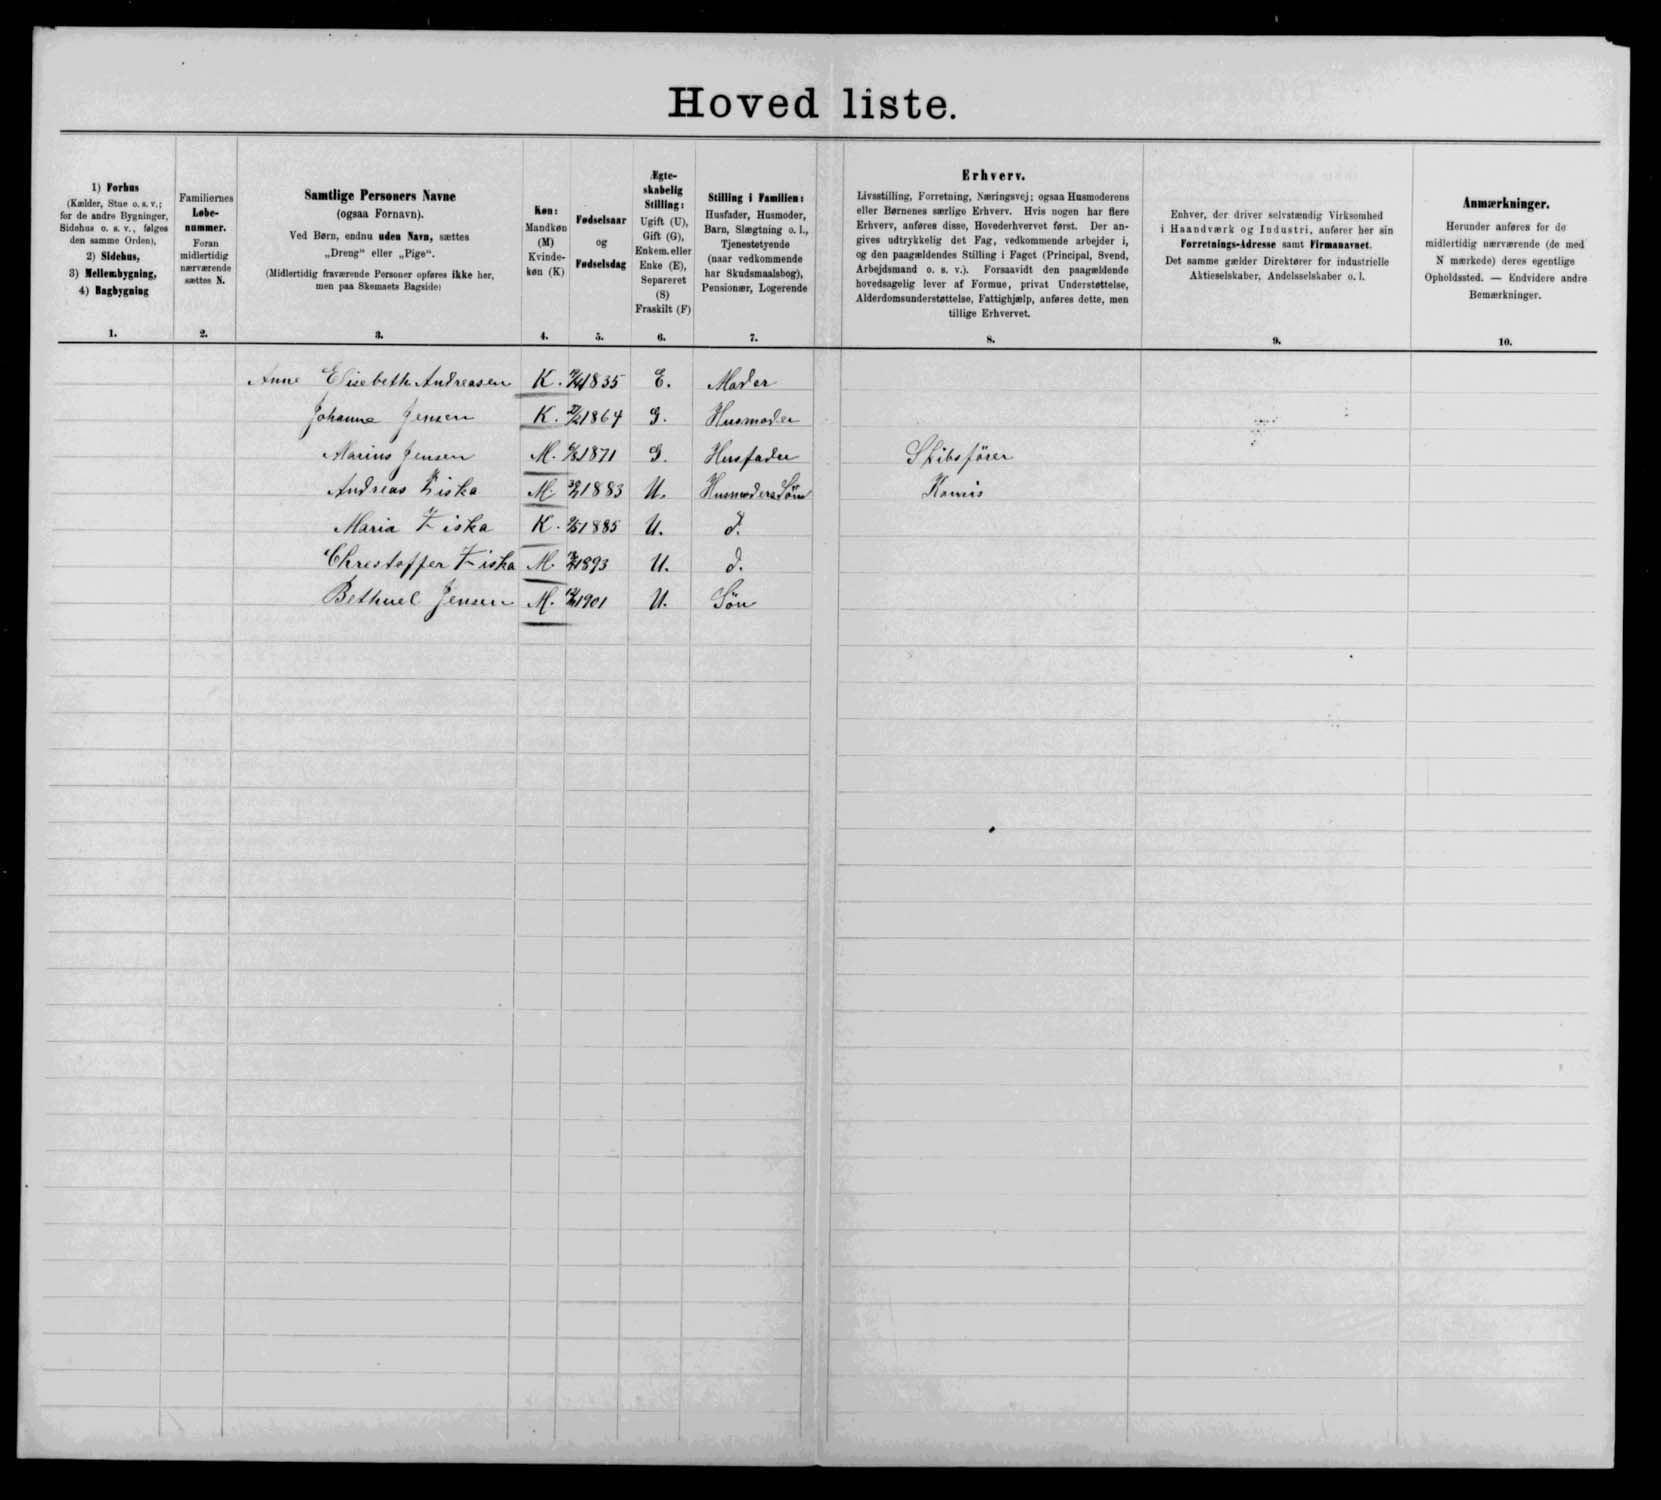 Hoved liste.
1) Forhus
(Kælder, Stue o. s. v.;
for de andre Bygninger,
Sidehus o. s. v., følges
den samme Orden),
2) Sidehus,
3) Mellembygning,
4) Bagbygning
1.
Familiernes
Løbe-
nummer.
Foran
midlertidig
nærværende
sættes N.
2.
Samtlige Personers Navne
(ogsaa Fornavn).
Ved Børn, endnu uden Navn, sættes
„Dreng" eller „Pige".
(Midlertidig fraværende Personer opføres ikke her,
men paa Skemaets Bagside)
3.
Køn:
Mandkøn
(M)
Kvinde-
køn (K)
4.
Fødselsaar
og
Fødselsdag
5.
Ægte-
skabelig
Stilling:
Ugift (U),
Gift (G),
Enkem. eller
Enke (E),
Separeret
(S)
Fraskilt (F)
6.
Stilling i Familien:
Husfader, Husmoder,
Barn, Slægtning o. l.,
Tjenestetyende
(naar vedkommende
har Skudsmaalsbog),
Pensionær, Logerende
7.
Erhverv.
Livsstilling, Forretning, Næringsvej; ogsaa Husmoderens
eller Børnenes særlige Erhverv. Hvis nogen har flere
Erhverv, anføres disse, Hovederhvervet først. Der an-
gives udtrykkelig det Fag, vedkommende arbejder i,
og den paagældendes Stilling i Faget (Principal, Svend,
Arbejdsmand o. s. v.). Forsaavidt den paagældende
hovedsagelig lever af Formue, privat Understøttelse,
Alderdomsunderstøttelse, Fattighjælp, anføres dette, men
tillige Erhvervet.
8.
Enhver, der driver selvstændig Virksomhed
i Haandværk og Industri, anfører her sin
Forretnings-Adresse samt Firmanavnet.
Det samme gælder Direktører for industrielle
Aktieselskaber, Andelsselskaber o. l.
9.
Anmærkninger.
Herunder anføres for de
midlertidig nærværende (de med
N mærkede) deres egentlige
Opholdssted. — Endvidere andre
Bemærkninger.
10.
Anne Elisebeth Andreasen K. 1835 E. Moder
Johanne Jensen K. 1864 G. Husmoder
Marius Jensen M. 1871 G. Husfader Skibsfører
Andreas Ziska M. 1883 U. Husmoders Søn Komis
Maria Ziska K. 1885 U. d.
Chrestoffer Ziska M. 1893 U. d.
Bethuel Jensen M. 1901 U. Søn